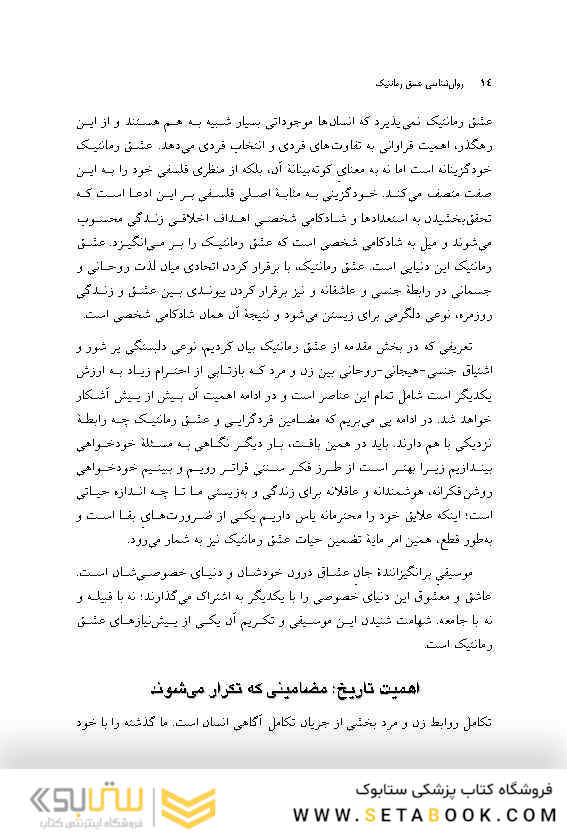 ۱٤ روان‌شناسی عشق رمانتیک
عشق رمانتیک نمی‌پذیرد که انسان‌ها موجوداتی بسیار شبیه به هم هستند و از این
رهگذر، اهمیت فراوانی به تفاوت‌های فردی و انتخاب فردی می‌دهد. عشق رمانتیک
خودگزینانه است اما نه به معنایِ کوته‌بینانهٔ آن، بلکه از منظری فلسفی خود را به این
صفت متصف می‌کند. خودگزینی به مثابهٔ اصلی فلسفی بر این ادعا است که
تحقق‌بخشیدن به استعدادها و شادکامی شخصی اهداف اخلاقی زندگی محسوب
می‌شوند و میل به شادکامی شخصی است که عشق رمانتیک را بر می‌انگیزد. عشق
رمانتیک این دنیایی است. عشق رمانتیک، با برقرار کردن اتحادی میان لذت روحانی و
جسمانی در رابطهٔ جنسی و عاشقانه و نیز برقرار کردن پیوندی بین عشق و زندگی
روزمره، نوعی دلگرمی برای زیستن می‌شود و نتیجهٔ آن همان شادکامی شخصی است.
تعریفی که در بخش مقدمه از عشق رمانتیک بیان کردیم، نوعی دلبستگی پر شور و
اشتیاق جنسی-هیجانی-روحانی بین زن و مرد که بازتابی از احترام زیاد به ارزش
یکدیگر است شامل تمام این عناصر است و در ادامه اهمیت آن بیش از پیش آشکار
خواهد شد. در ادامه پی می‌بریم که مضامین فردگرایی و عشق رمانتیک چه رابطهٔ
نزدیکی با هم دارند. باید در همین بافت، بار دیگر نگاهی به مسئلهٔ خودخواهی
بیندازیم زیرا بهتر است از طرز فکر سنتی فراتر رویم و ببینیم خودخواهی
روشن‌فکرانه، هوشمندانه و عاقلانه برای زندگی و به‌زیستی ما تا چه اندازه حیاتی
است؛ اینکه علایق خود را محترمانه پاس داریم یکی از ضرورت‌هایِ بقا است و
به‌طور قطع، همین امر مایهٔ تضمین حیات عشق رمانتیک نیز به شمار می‌رود.
موسیقیِ برانگیزانندهٔ جانِ عشاق درون خودشان و دنیای خصوصی‌شان است.
عاشق و معشوق این دنیای خصوصی را با یکدیگر به اشتراک می‌گذارند؛ نه با قبیله و
نه با جامعه. شهامت شنیدن این موسیقی و تکریم آن یکی از پیش‌نیازهای عشق
رمانتیک است.
اهمیت تاریخ: مضامینی که تکرار می‌شوند
تکامل روابط زن و مرد بخشی از جریان تکامل آگاهی انسان است. ما گذشته را با خود
فروشگاه کتاب پزشکی ستابوک
WWW.SETABOOK.COM
ستابوک
فروشگاه اینترنتی کتاب